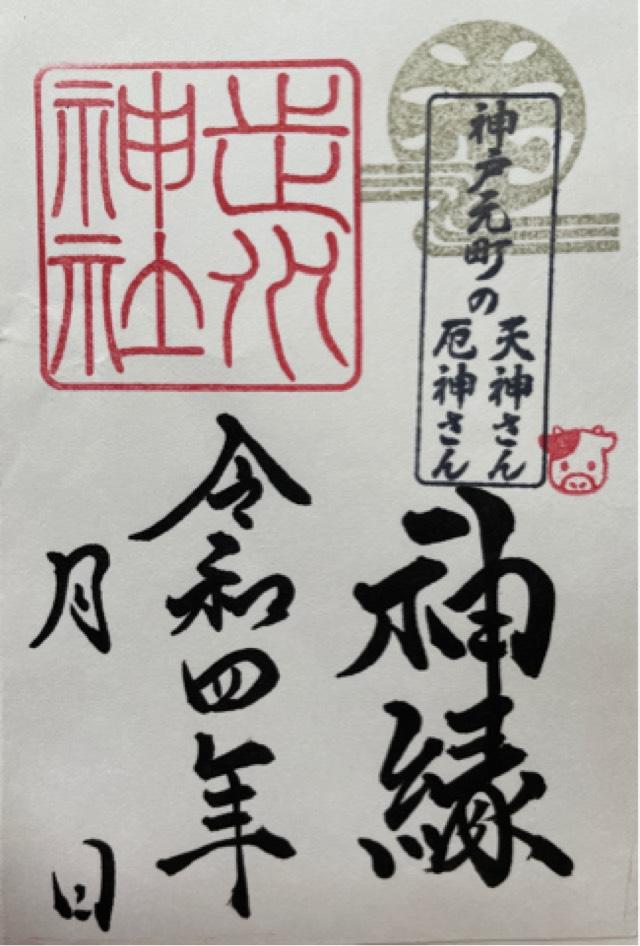 神戸元町の
天神さん
厄神さん
神縁
走水
神社
令和四年
月　日